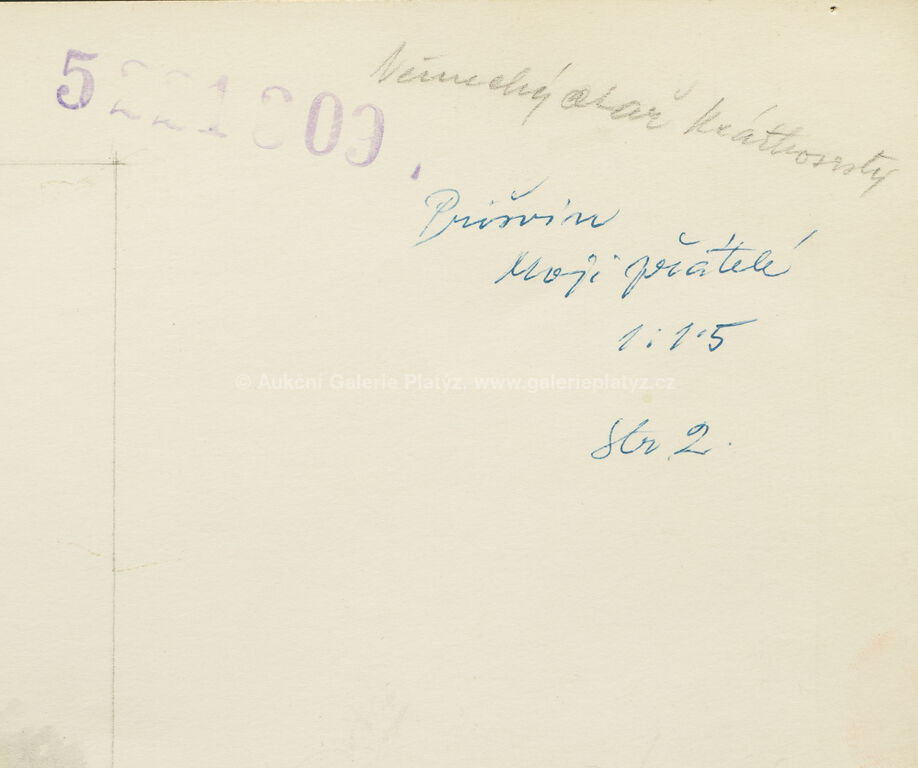 5221809.
Německý ohař krátkosrstý
Prišvin
Moji přátelé
1:1'5
Str 2.
© Aukční Galerie Platýz, www.galerieplatyz.cz